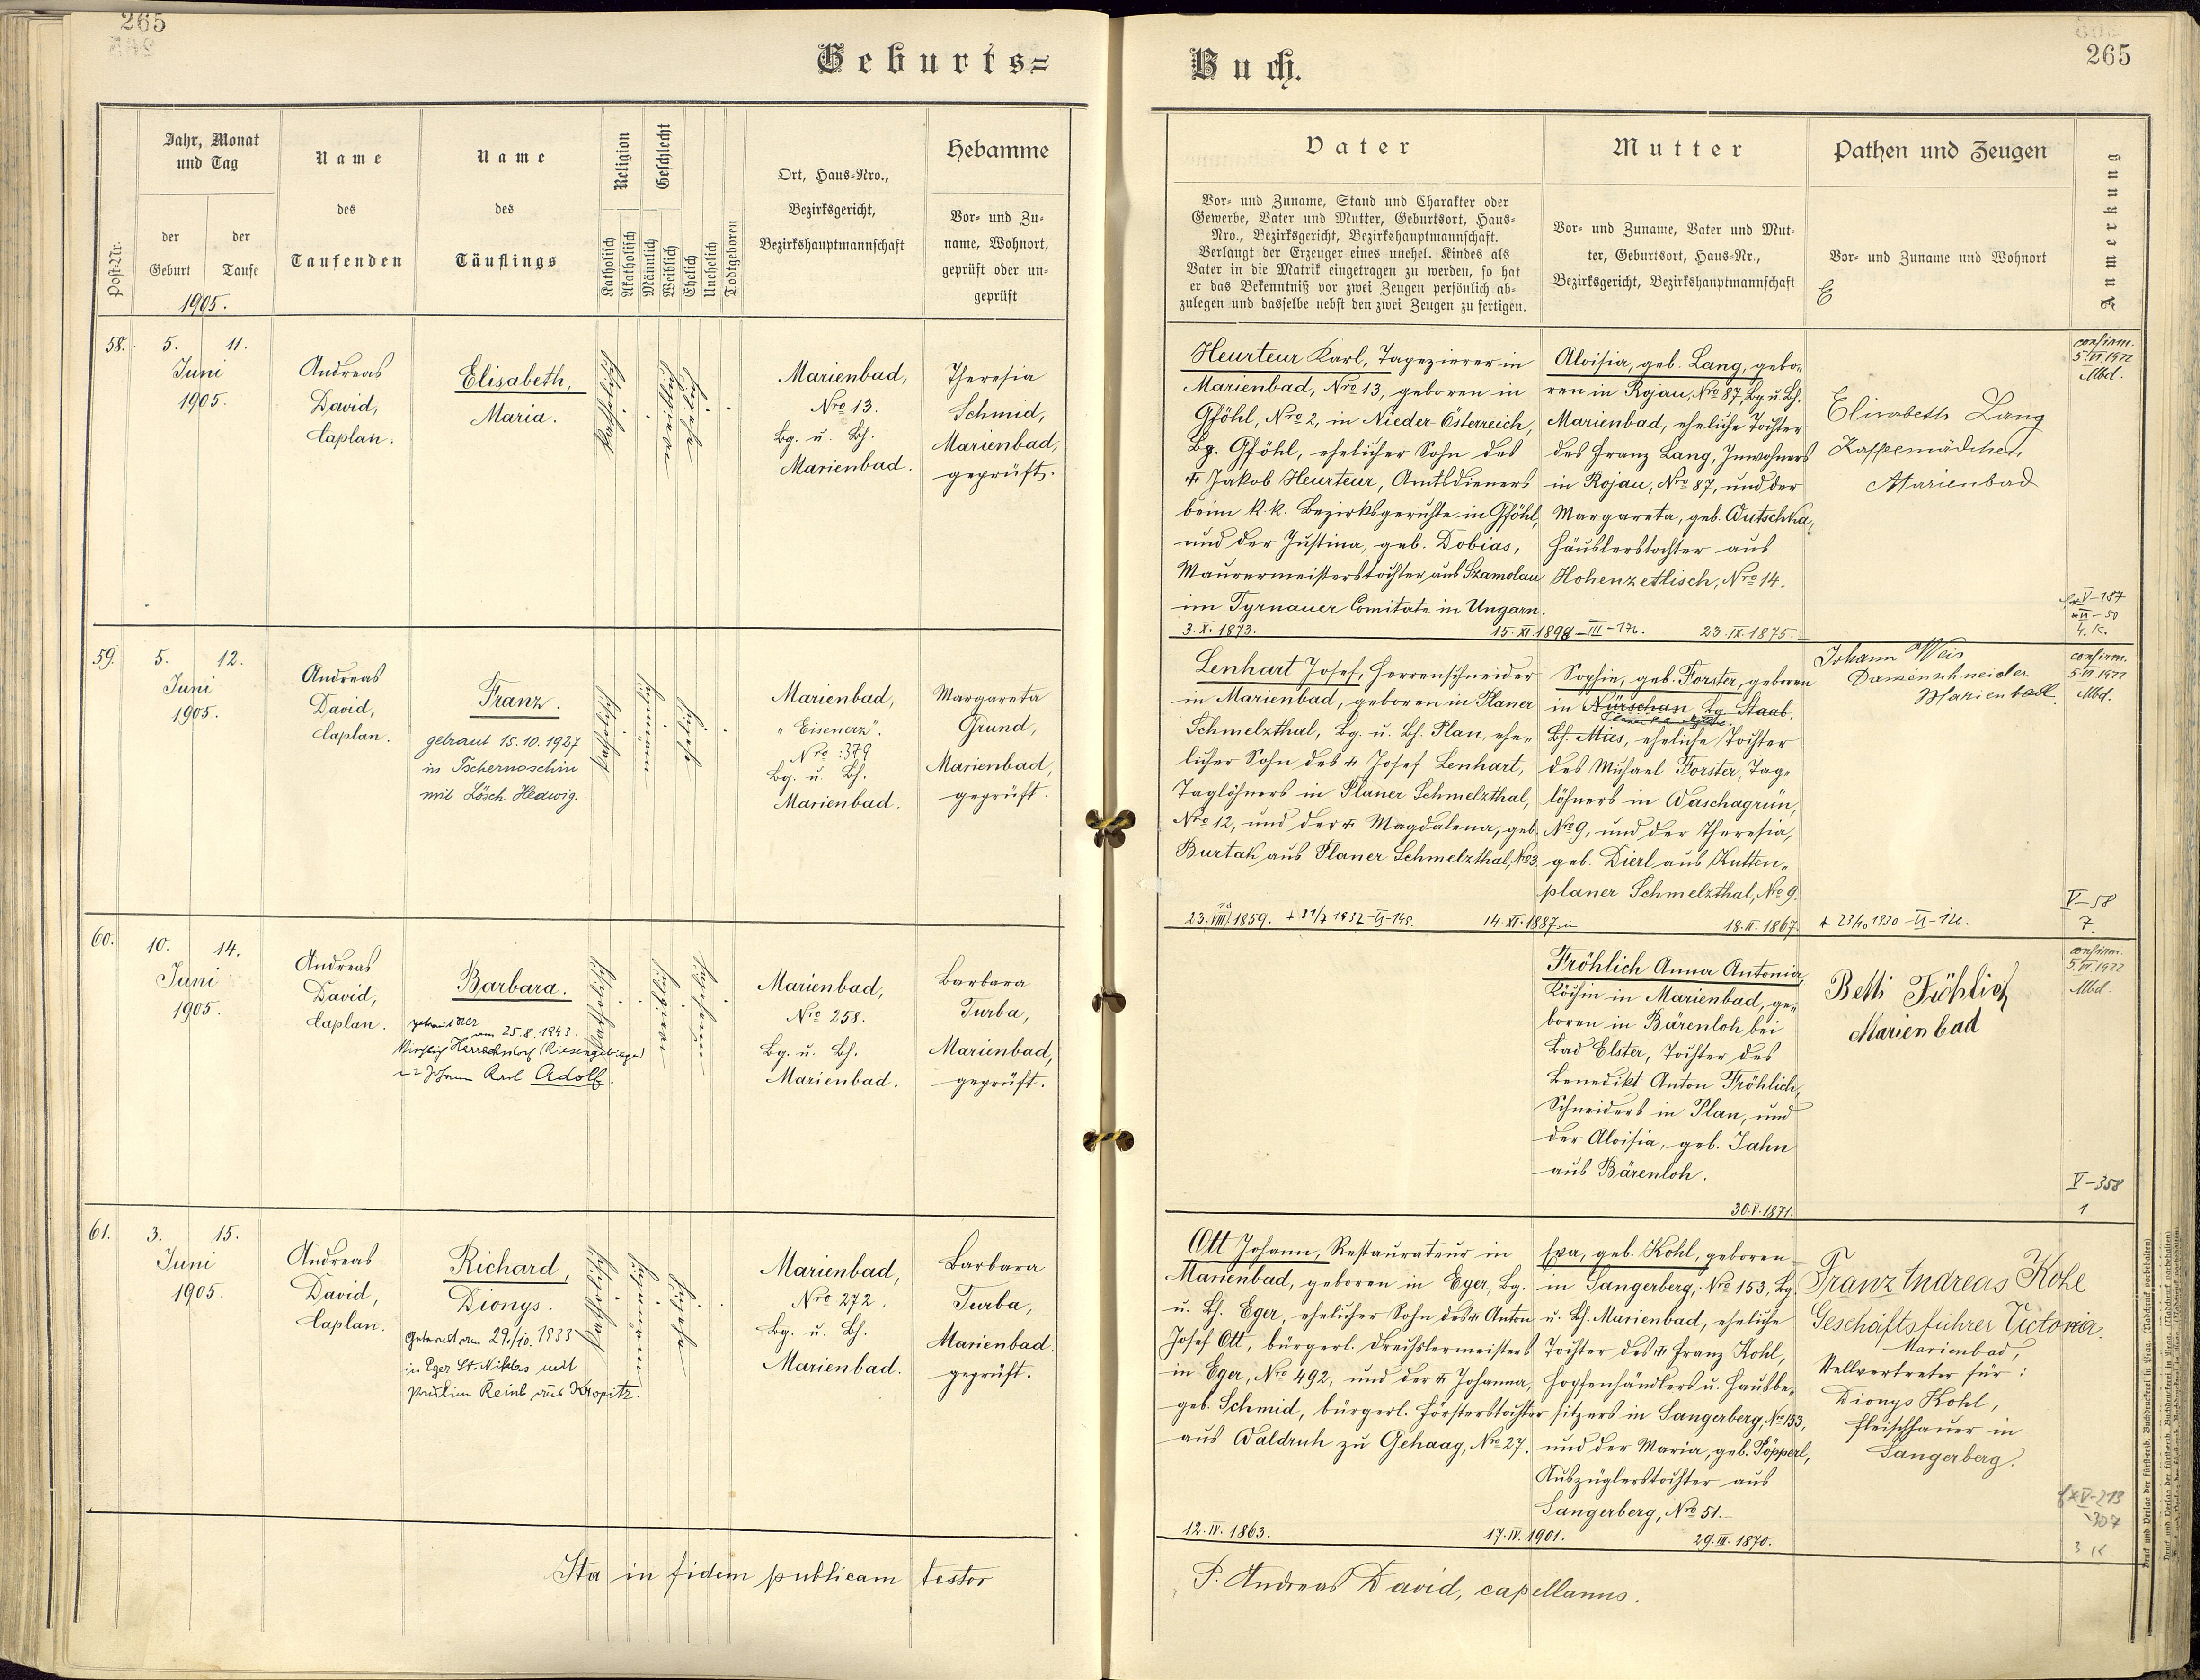 265
Geburts=
Jahr, Monat
und Tag
Name
Name
Religion
Geschlecht
Hebamme
Post-Nr.
der
Geburt
der
Taufe
des
Taufenden
des
Täuflings
Katholisch
Akatholisch
Männlich
Weiblich
Ehelich
Unehelich
Todtgeboren
Ort, Haus-Nro.,
Bezirksgericht,
Bezirkshauptmannschaft
Vor- und Zu-
name, Wohnort,
geprüft oder un-
geprüft
1905.
58.
5.
11.
Juni
1905.
Andreas
David,
Caplan.
Elisabeth,
Maria.
Marienbad,
Nro 13.
Bg. u. Bh.
Marienbad.
Theresia
Schmid,
Marienbad,
geprüft.
59.
5.
12.
Juni
1905.
Andreas
David,
Caplan.
Franz.
getraut 15.10.1927
in Tschernoschin
mit Lösch Hedwig.
Marienbad,
"Eisenerz".
Nro :379
Bg. u. Bh.
Marienbad.
Margareta
Grund,
Marienbad,
geprüft.
60.
10.
14.
Juni
1905.
Andreas
David,
Caplan.
Barbara.
am 25.8.1943.
(Riesengebirge)
Johann Karl Adolf.
Marienbad,
Nro 258.
Bg. u. Bh.
Marienbad.
Barbara
Turba,
Marienbad,
geprüft.
61.
3.
15.
Juni
1905.
Andreas
David,
Caplan.
Richard,
Dionys.
Getraut am 29./10. 1933
in Eger St. Niklas mit
Reinl, aus Kropitz.
Marienbad,
Nro 272.
Bg. u. Bh.
Marienbad.
Barbara
Turba,
Marienbad.
geprüft.
Ita in fidem publicam testor
Buch.
265
Vater
Mutter
Pathen und Zeugen
Anmerkung
Vor- und Zuname, Stand und Charakter oder
Gewerbe, Vater und Mutter, Geburtsort, Haus-
Nro., Bezirksgericht, Bezirkshauptmannschaft.
Verlangt der Erzeuger eines unehel. Kindes als
Vater in die Matrik eingetragen zu werden, so hat
er das Bekenntniß vor zwei Zeugen persönlich ab-
zulegen und dasselbe nebst den zwei Zeugen zu fertigen.
Vor- und Zuname, Vater und Mut-
ter, Geburtsort, Haus-Nr.,
Bezirksgericht, Bezirkshauptmannschaft
Vor- und Zuname und Wohnort
Heurteur Karl, Tapezierer in
Marienbad, Nro 13, geboren in
Gföhl, Nro 2, in Nieder-Österreich,
Bg. Gföhl, ehelicher Sohn des
† Jakob Heurteur, Amtsdieners
beim k. k. Bezirksgerichte in Gföhl,
und der Justina, geb. Dobias,
Maurermeisterstochter aus Szamolan
im Tyrnauer Comitate in Ungarn.
3. X. 1873.
15. XI. 1898 – III – 176.
Aloisia, geb. Lang, gebo-
ren in Rojau, Nro 87, Bg. u. Bh.
Marienbad, eheliche Tochter
des Franz Lang, Inwohners
in Rojau, Nro 87, und der
Margareta, geb. Wutschka,
Häuslerstochter aus
Hohenzetlisch, Nro 14.
23. IX. 1875.
Elisabeth Lang
Kaffeemädchen
Marienbad
confirm.
5. VI. 1922
Mbd.
V – 187
VI – 50
4. K.
Lenhart Josef, Herrenschneider
in Marienbad, geboren in Planer
Schmelzthal, Bg. u. Bh. Plan, ehe-
licher Sohn des † Josef Lenhart,
Taglöhners in Planer Schmelzthal,
Nro 12, und der † Magdalena, geb.
Burtak aus Planer Schmelzthal, Nro 3.
23. VIII. 1859.
14. XI. 1887
Sophie, geb. Forster, geboren
in Nürschan, Bg. Staab.
Bh. Mies, eheliche Tochter
des Michael Forster, Tag-
löhners in Waschagrün,
Nro 9, und der Theresia,
geb. Dierl aus Kutten-
planer Schmelzthal, Nro 9.
18. II. 1867.
Johann Weis
Damenschneider
Marienbad.
confirm.
5. VI 1922
Mbd.
V – 58
7.
Fröhlich Anna Antonia,
Köchin in Marienbad, ge-
boren in Bärenloh bei
Bad Elster, Tochter des
Benedikt Anton Fröhlich,
Schneiders in Plan, und
der Aloisia, geb. Jahn
aus Bärenloh.
30. V. 1871.
Betti Fröhlich
Marienbad
confirm.
5. VI 1922
Mbd.
V – 358
1
Ott Johann, Restaurateur in
Marienbad, geboren in Eger, Bg.
u. Bh. Eger, ehelicher Sohn des † Anton
Josef Ott, bürgerl. Drechslermeisters
in Eger, Nro 492, und der † Johanna,
geb. Schmid, bürgerl. Försterstochter
aus Waldruh zu Gehaag, Nro 27.
12. IV. 1863.
17. IV. 1901.
Eva, geb. Kohl, geboren
in Sangerberg, Nro 153, Bg.
u. Bh. Marienbad, eheliche
Tochter des † Franz Kohl,
Hopfenhändlers u. Hausbe-
sitzers in Sangerberg, Nro 153,
und der Maria, geb. Pöpperl,
Auszüglerstochter aus
Sangerberg, Nro 51.
29. III. 1870.
Franz Andreas Kohl
Geschäftsführer Victoria.
Marienbad,
Stellvertreter für:
Dionys Kohl,
Fleischhauer in
Sangerberg.
V – 213
307
3 K.
P. Andreas David, capellanus.